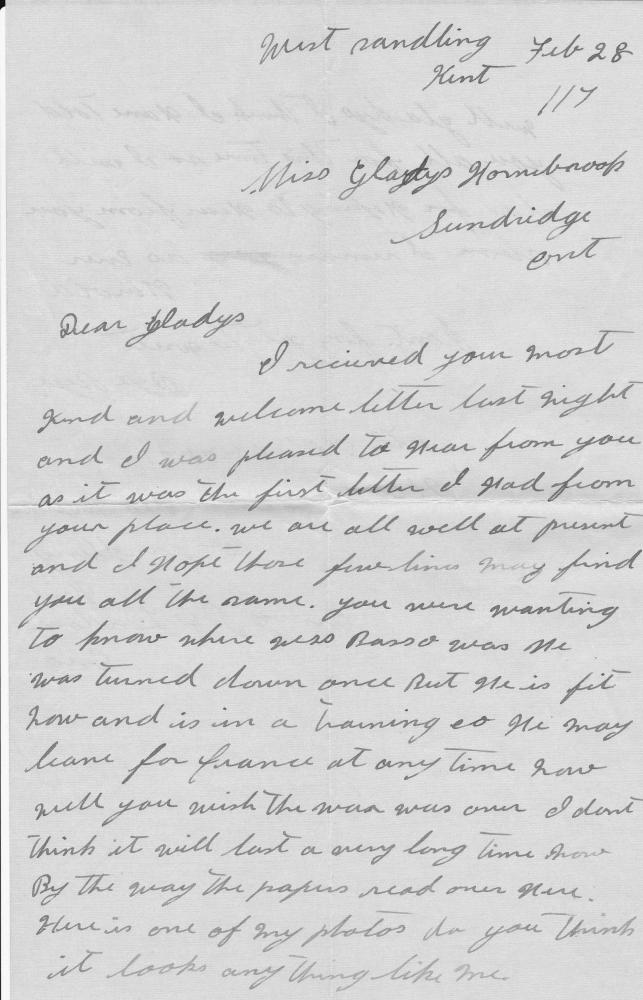 West sandling
Kent
Feb 28
/17
Miss Gladys Hornibrook
Sundridge
Ont
Dear Gladys
I recieved your most
kind and welcome letter last night
and I was pleased to Hear from you
as it was the first letter I Had from
your place. we are all well at present
and I Hope those few lines may find
you all the same. you were wanting
to know where Basso was He
was turned down once But He is fit
now and is in a training co He may
leave for france at any time now
well you wish the war was over I dont
think it will last a very long time now
By the way the papers read over Here.
Here is one of my photos do you think
it looks any thing like me.